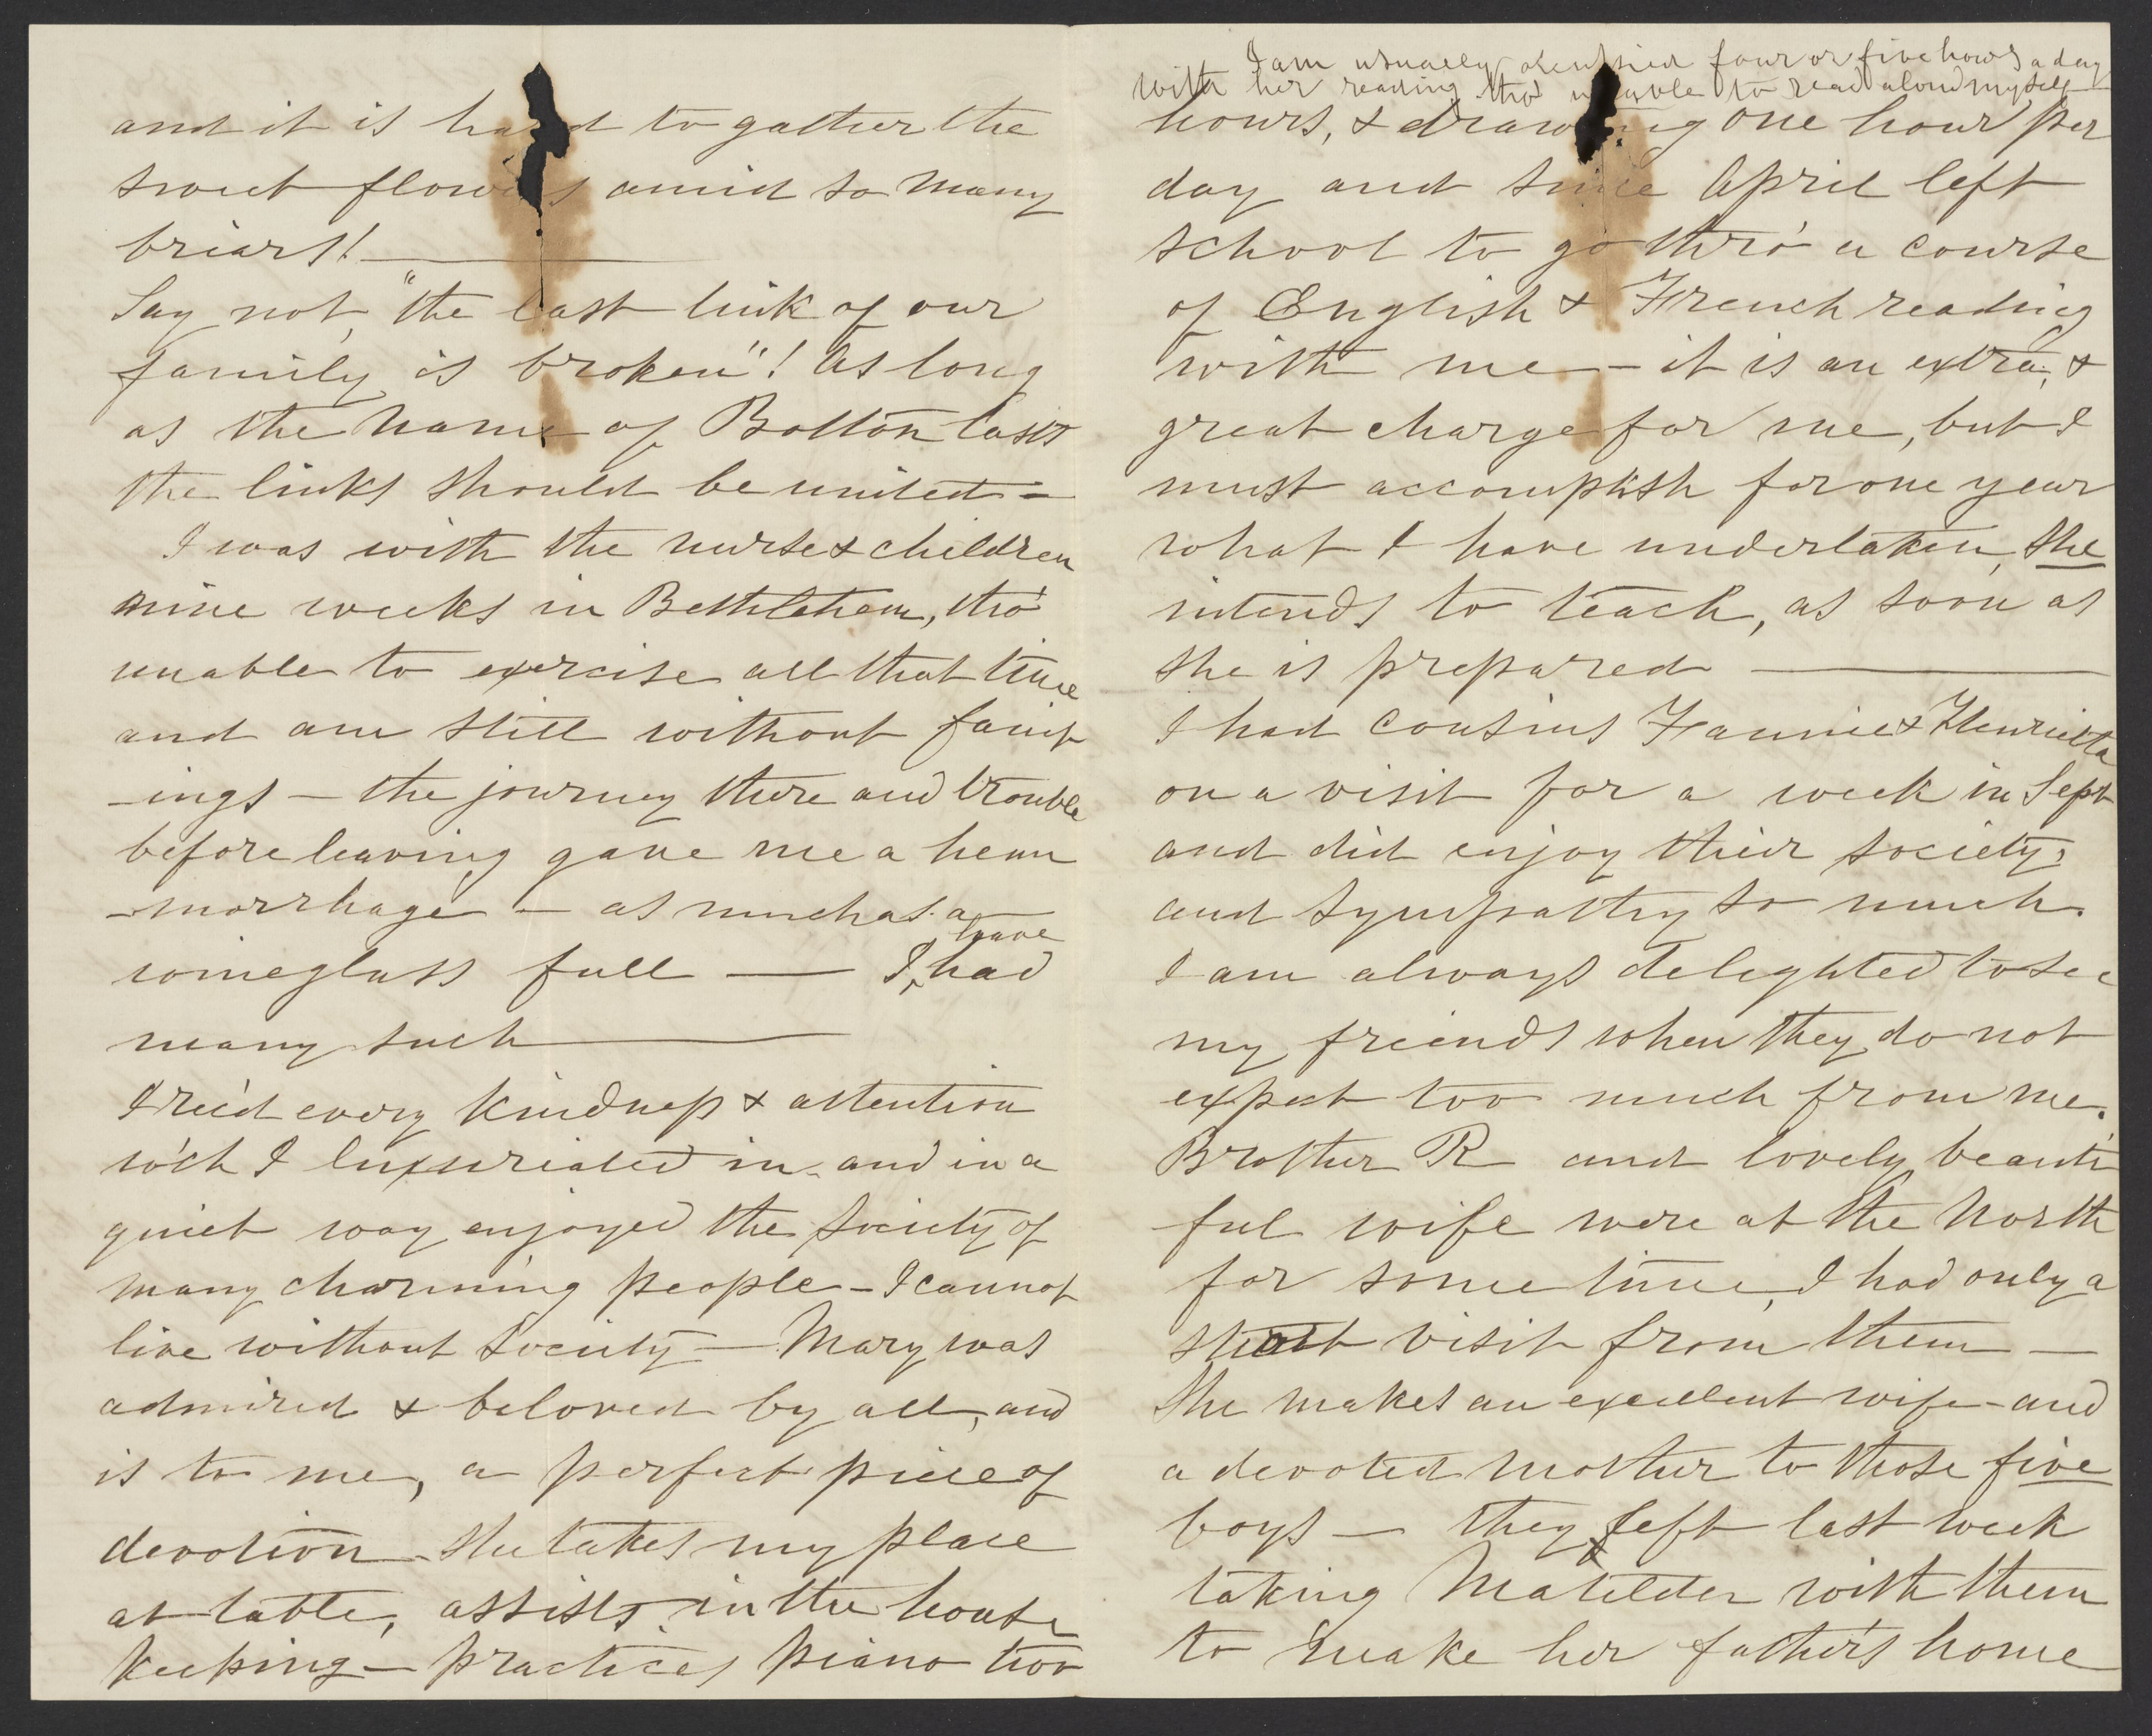 and it is hard to gather the
sweet flowers amid so many
briars! —
Say not, "the last link of our
family is broken"! As long
as the name of Bolton lasts
the links should be united -
I was with the nurse & children
nine weeks in Bethlehem, tho'
unable to exercise all that time
and am still without faint
-ings — the journey there and trouble
before leaving gave me a hem
-morrhage — as much as a
wineglass full — I have had
many such —
I rec'd every kindness & attention
w'ch I luxuriated in - and in a
quiet way enjoyed the society of
many charming people - I cannot
live without society — Mary was
admired & beloved by all, and
is to me, a perfect piece of
devotion - she takes my place
at table, assists in the house
keeping — practices piano two
I am usually occupied four or five hours a day
with her reading tho' unable to read aloud myself
hours, & drawing one hour per
day and since April left
school to go thro' a course
of English & French reading
with me — it is an extra, &
great charge for me, but I
must accomplish for one year
what I have undertaken, she
intends to teach, as soon as
she is prepared —
I had cousins Fannie & Henrietta
on a visit for a week in Sept
and did enjoy their society,
and sympathy so much.
I am always delighted to see
my friends when they do not
expect too much from me.
Brother R and lovely beauti
ful wife were at the North
for some time, I had only a
short visit from them —
She makes an excellent wife - and
a devoted mother to those five
boys — they left last week
taking Matilda with them
to make her father's home